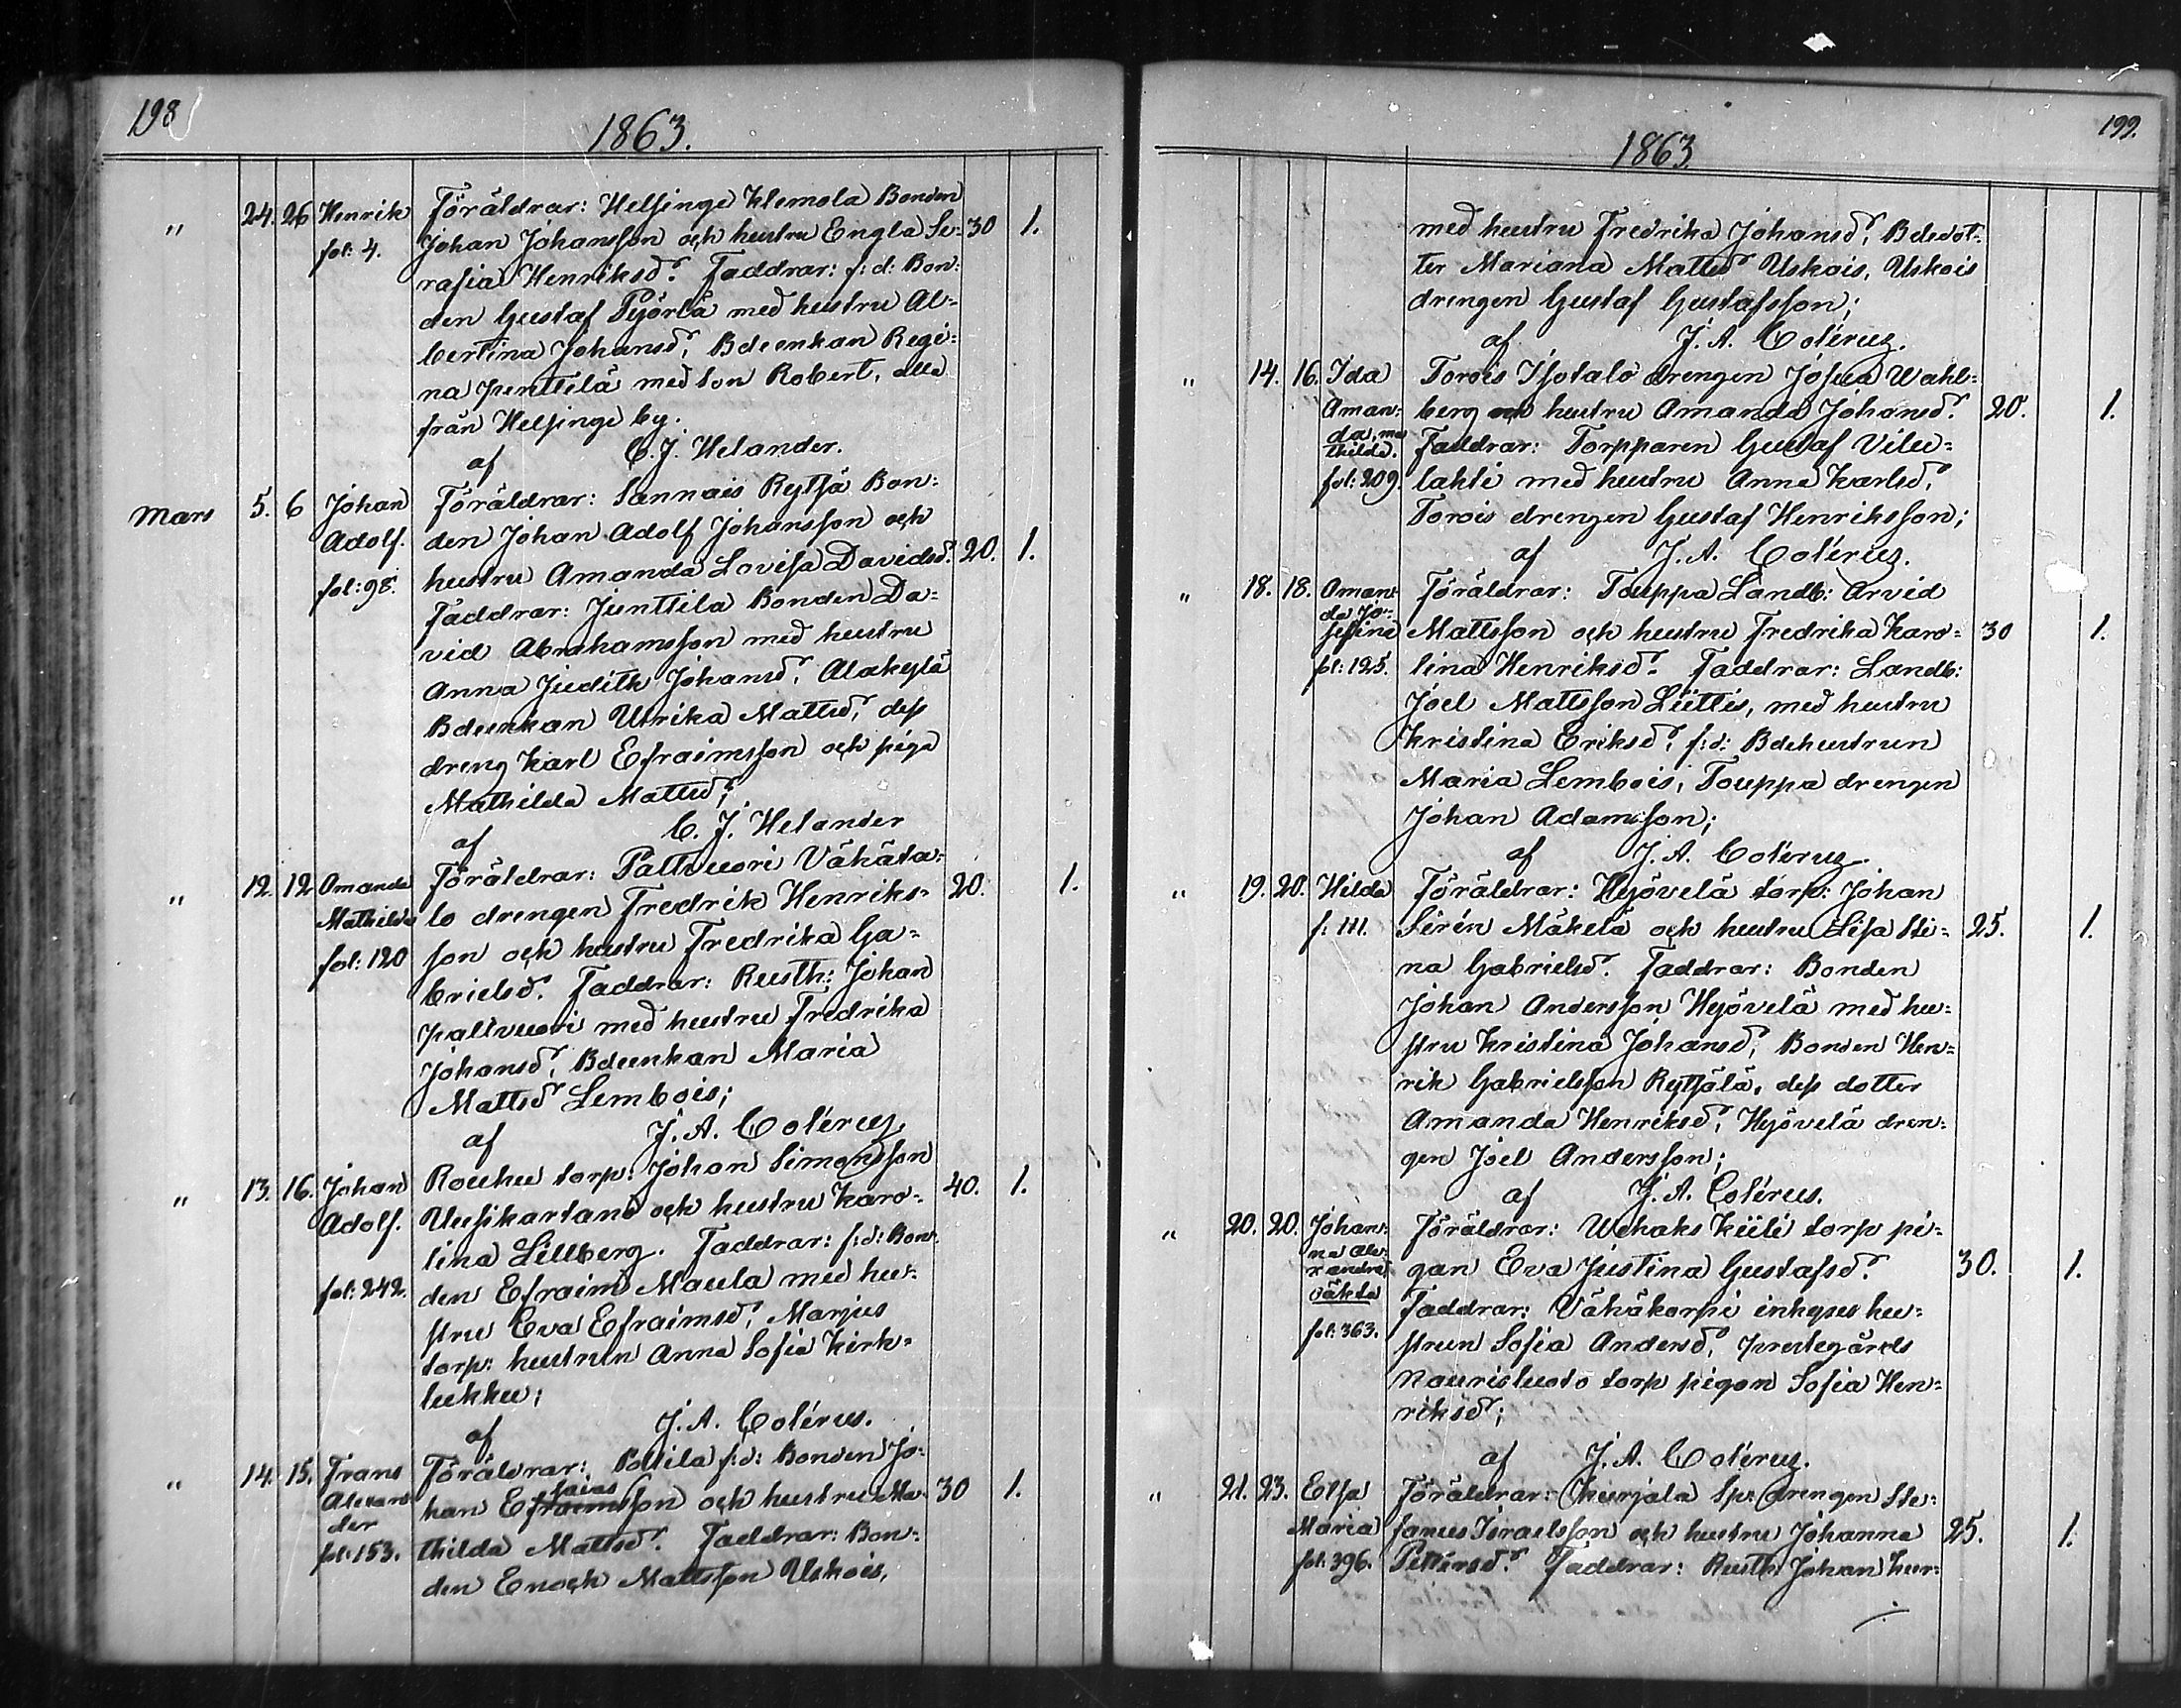 198
1863.
" 24. 26 Henrik Föräldrar: Helsinge Klemola Bonden
fol: 4. Johan Johansson och hustru Engla Se- 30 1.
rafia Henriksd:r Faddrar: f:d: Bon-
den Gustaf Pyörlä med hustru Al-
bertina Johansd:r, Bdeenkan Regi-
na Penttilä med son Robert, alla
från Helsinge by.
af C. J. Helander.
Mars 5. 6 Johan Föräldrar: Sannais Rytsä Bon-
Adolf. den Johan Adolf Johansson och
fol: 98. hustru Amanda Lovisa Davidsd:r 20. 1.
Faddrar: Junttila Bonden Da-
vid Abrahamsson med hustru
Anna Judith Johansd:r, Alakylä
Bdeenkan Ulrika Mattsd:r, dess
dreng Karl Efraimsson och piga
Mathilda Mattsd:r;
af C. J. Helander
" 12. 12 Amanda Föräldrar: Paltvuori Vähäta-
Mathilda lo drengen Fredrik Henriks- 20. 1.
fol: 120 son och hustru Fredrika Ga-
brielsd. Faddrar: Rusth: Johan
Paltvuori med hustru Fredrika
Johansd:r, Bdeenkan Maria
Mattsd:r Lembois;
af J. A. Colérus
" 13. 16. Johan Rouhu torp: Johan Simonsson
Adolf. Uusikartano och hustru Karo- 40. 1.
lina Lillberg. Faddrar: f:d: Bon-
fol: 242. den Efraim Maula med hu-
stru Eva Efraimsd:r, Marjus
torp: hustrun Anna Sofia Kirk-
lukku;
af J. A. Colérus.
" 14. 15. Frans Föräldrar: Poltila f:d: Bonden Jo-
Alexan- han Esaiasson och hustru Ma- 30 1.
der thilda Mattsd:r Faddrar: Bon-
fol: 153. den Enoch Mattsson Uskois,
199.
1863
med hustru Fredrika Johansd:r, Bdedot-
ter Mariana Mattsd:r Uskois, Uskois
drengen Gustaf Gustafsson;
af J. A. Colérus.
" 14. 16. Ida Torois Isotalo drengen Josua Wahl-
Aman- berg och hustru Amanda Johansd:r 20. 1.
da, Ma-
thilda. Faddrar: Torpparen Gustaf Vilu-
fol: 209. lahti med hustru Anna Karlsd:r,
Torois drengen Gustaf Henriksson;
af J. A. Colérus.
" 18. 18. Aman- Föräldrar: Touppa Landb: Arvid
da Jo-
sefina Mattsson och hustru Fredrika Karo- 30 1.
fol: 125. lina Henriksd:r Faddrar: Landb:
Joel Mattsson Lüttis, med hustru
Kristina Eriksd:r, f:d: Bdehustrun
Maria Lembois, Touppa drengen
Johan Adamsson;
af J. A. Colérus.
" 19. 20. Hilda Föräldrar: Hyövelä torp: Johan
f: 111. Sirén Mäkelä och hustru Lisa Sti- 25. 1.
na Gabrielsd:r Faddrar: Bonden
Johan Andersson Hyövelä med hu-
stru Kristina Johansd:r, Bonden Hen-
rik Gabrielsson Rytsälä, dess dotter
Amanda Henriksd:r, Hyövelä dren-
gen Joel Andersson;
af J. A. Colérus.
" 20. 20. Johan- Föräldrar: Wehaks Kiili torp pi-
na Ale-
xandra gan Eva Justina Gustafsd:r 30. 1.
oäkta Faddrar: Vähäkorpi inhyses hu-
fol: 363. strun Sofia Andersd:r, Prestegårds
Nauristuoto torp pigan Sofia Hen-
riksd:r;
af J. A. Colérus.
" 21. 23. Elsa Föräldrar: Kurjala Sp: drengen Ste-
Maria fanus Israelsson och hustru Johanna 25. 1.
fol: 396. Pettersd:r Faddrar: Rusth: Johan Kur-